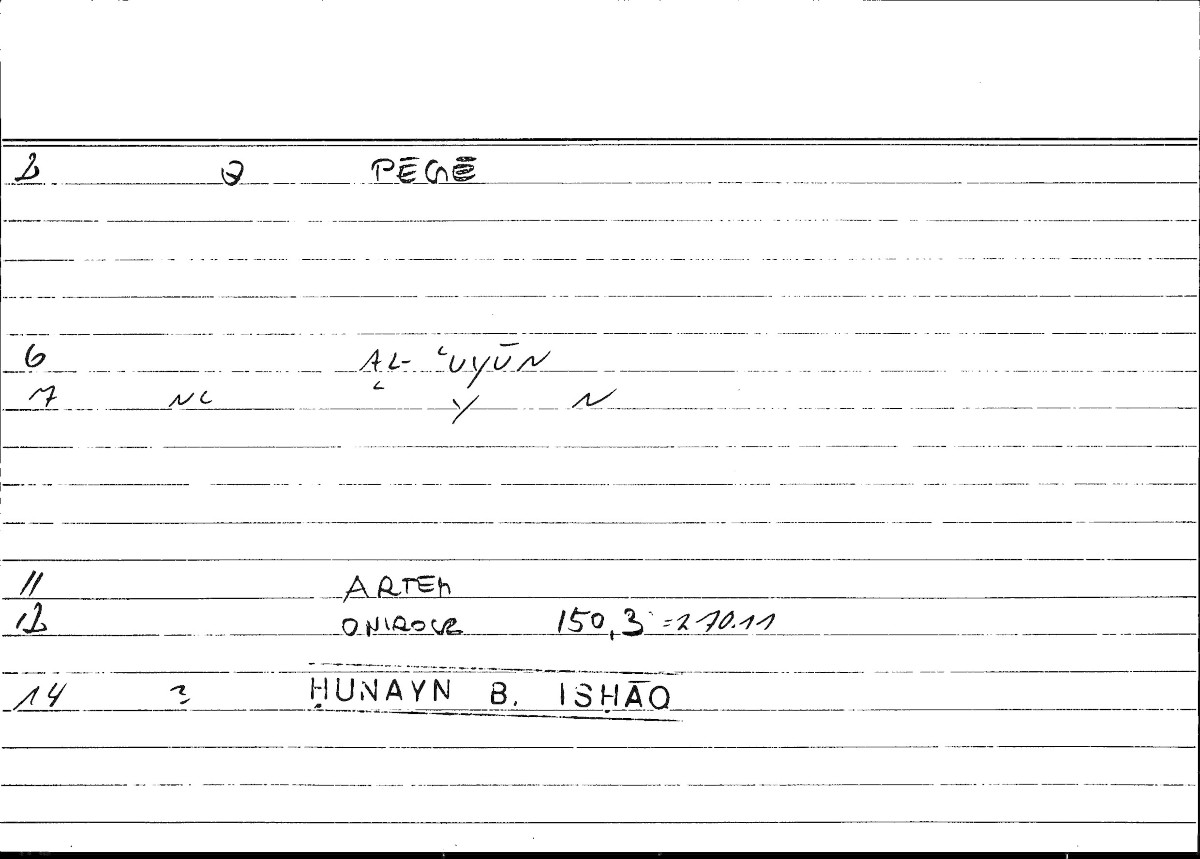 2 Q PĒGĒ
6 AL- ʿUYŪN
7 NC ʿ Y N
11 ARTEM
12 ONIROCR 150,3 =270.11
14 2 ḤUNAYN B. ISḤĀQ